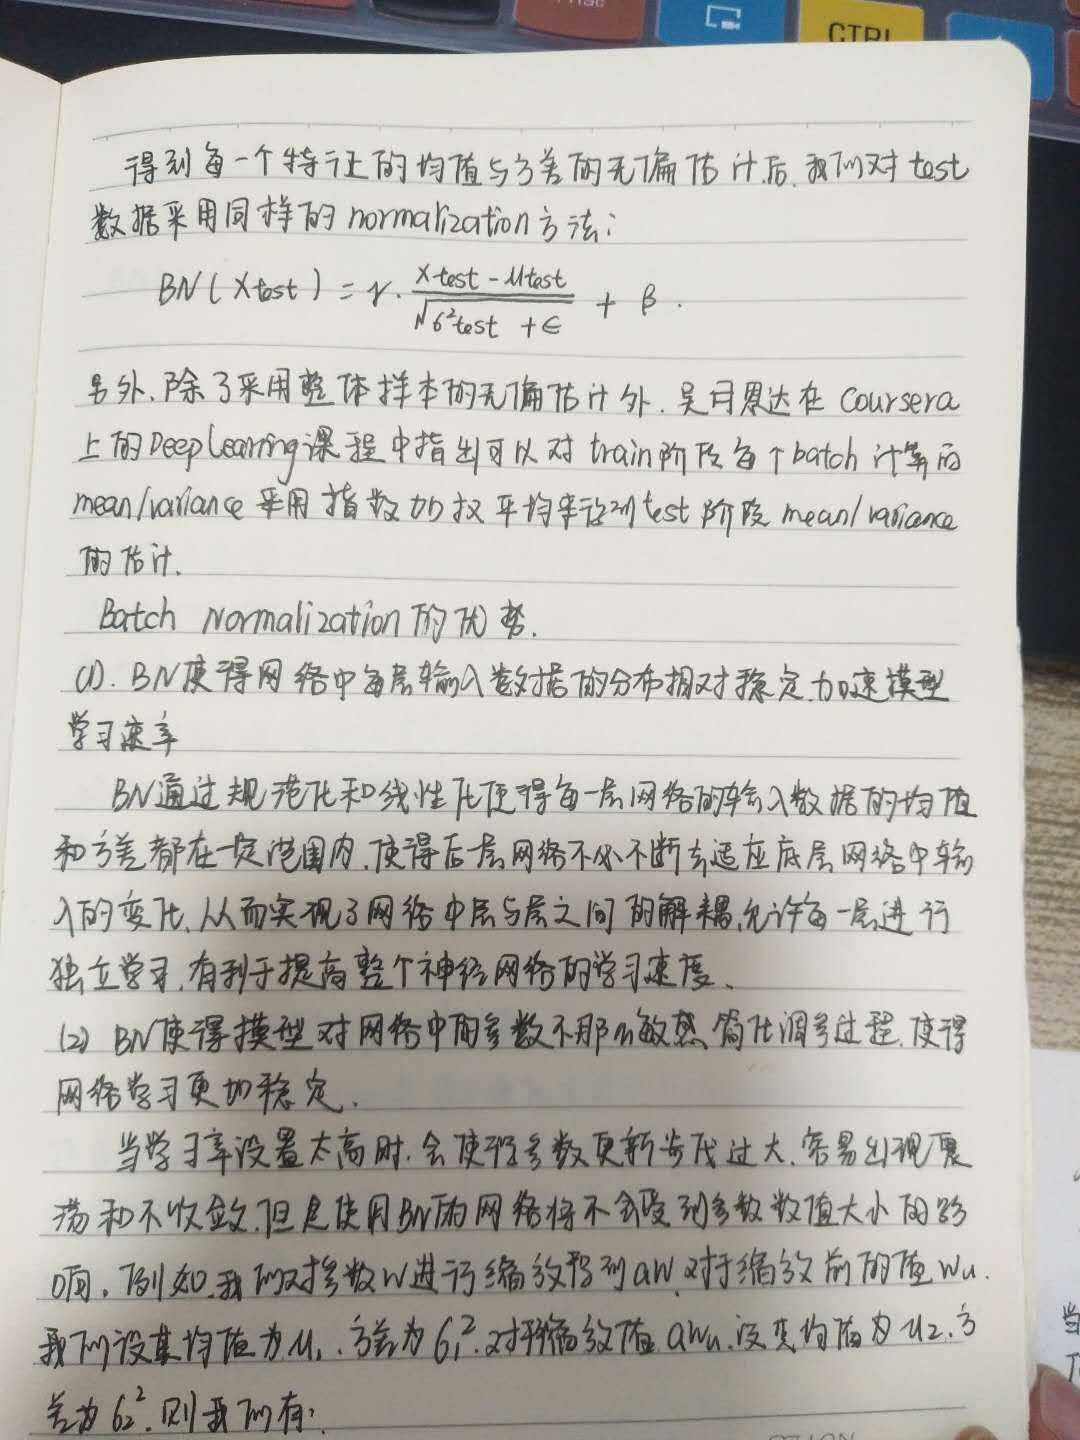 CTRL
得到每一个特征的均值与方差的无偏估计后,我们对test
数据采用同样的normalization方法:
BN(Xtest) = γ· (Xtest - μtest) / √(σ²test + ϵ) + β.
另外,除了采用整体样本的无偏估计外,吴恩达在Coursera
上的Deep Learning课程中指出可以对train阶段每个batch计算的
mean/variance采用指数加权平均来得到test阶段mean/variance
的估计.
Batch Normalization的优势.
(1). BN使得网络中每层输入数据的分布相对稳定,加速模型
学习速率
BN通过规范化和线性化使得每一层网络的输入数据的均值
和方差都在一定范围内,使得后层网络不必不断去适应底层网络中输
入的变化,从而实现了网络中层与层之间的解耦,允许每一层进行
独立学习,有利于提高整个神经网络的学习速度、
(2) BN使得模型对网络中的参数不那么敏感,简化调参过程,使得
网络学习更加稳定.
当学习率设置太高时,会使得参数更新步伐过大,容易出现震
荡和不收敛,但是使用BN的网络将不会受到参数数值大小的影
响。例如,我们对参数W进行缩放得到aW,对于缩放前的值Wu.
我们设其均值为μ₁,方差为σ₁²,对于缩放值aWu,设其均值为μ₂,方
差为σ₂²,则我们有: